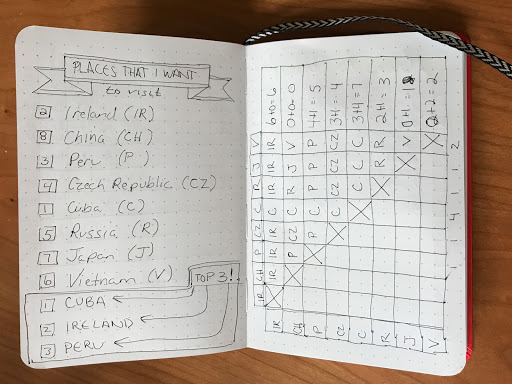 PLACES THAT I WANT
to visit
2 Ireland (IR)
8 China (CH)
3 Peru (P)
4 Czech Republic (CZ)
1 Cuba (C)
5 Russia (R)
7 Japan (J)
6 Vietnam (V)
TOP 3!!
1 CUBA
2 IRELAND
3 PERU
IR CH P CZ C R J V
IR X IR IR IR IR IR IR IR 6+0=6
CH X P CZ C R J V 0+0=0
P X P C P P P 4+1=5
CZ X C CZ CZ CZ 3+1=4
C X C C C 3+4=7
R X R R 2+1=3
J X V 0+1=1
V X 0+2=2
1 1 4 1 1 2